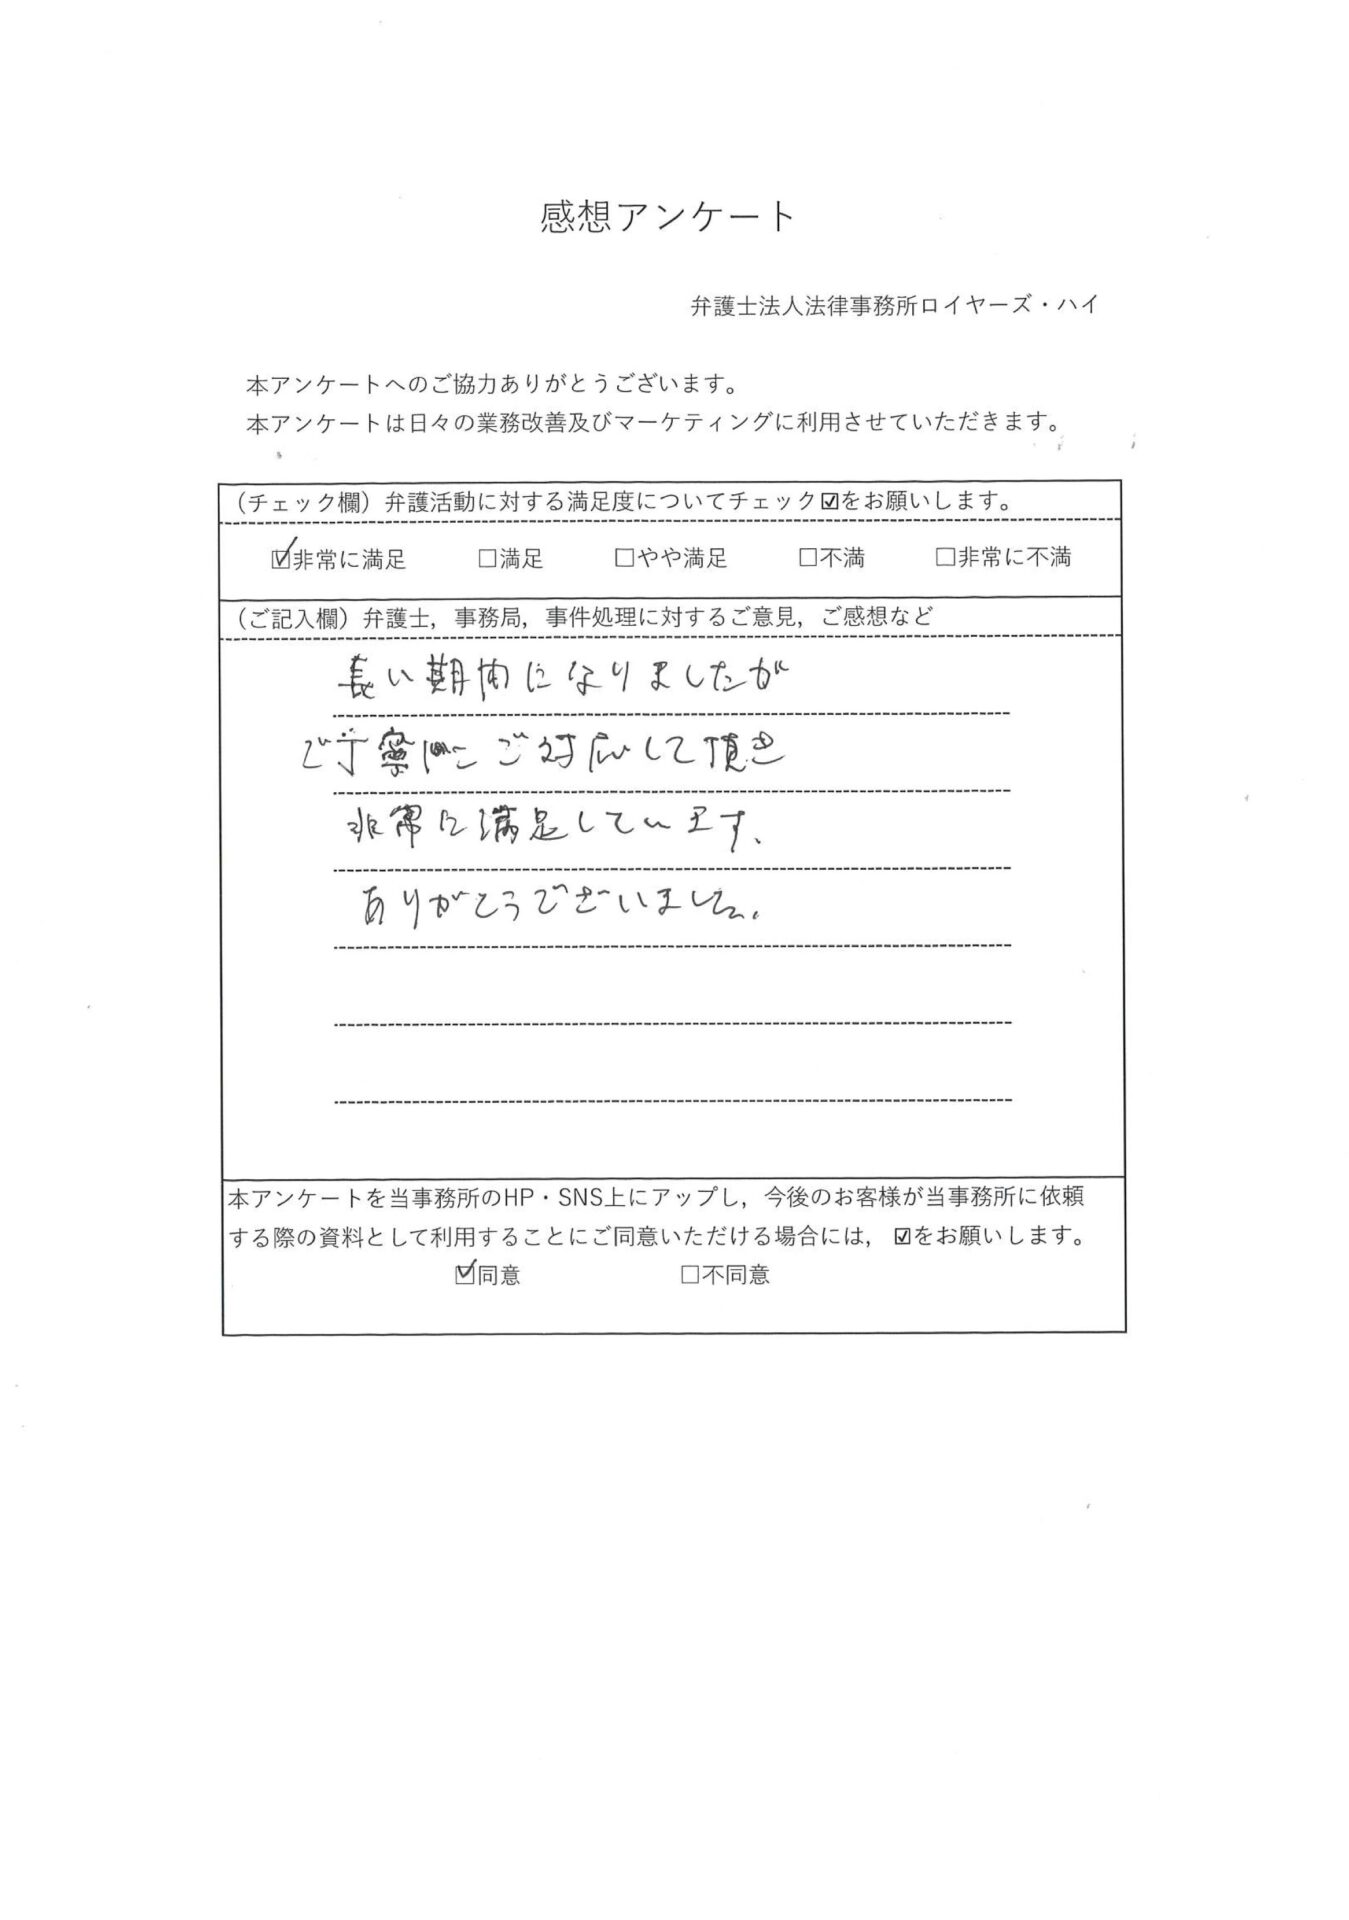 感想アンケート
弁護士法人法律事務所ロイヤーズ・ハイ
本アンケートへのご協力ありがとうございます。
本アンケートは日々の業務改善及びマーケティングに利用させていただきます。
（チェック欄）弁護活動に対する満足度についてチェック☑をお願いします。
☑非常に満足 □満足 □やや満足 □不満 □非常に不満
（ご記入欄）弁護士，事務局，事件処理に対するご意見，ご感想など
長い期間になりましたが
ご対応して頂き
非常に満足しています、
ありがとうございました。
本アンケートを当事務所のHP・SNS上にアップし，今後のお客様が当事務所に依頼
する際の資料として利用することにご同意いただける場合には，☑をお願いします。
☑同意 □不同意